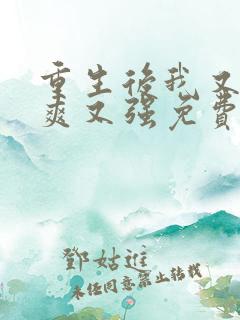 重生后我又
爽又强免费
鄧姑進
未经同意禁止转载